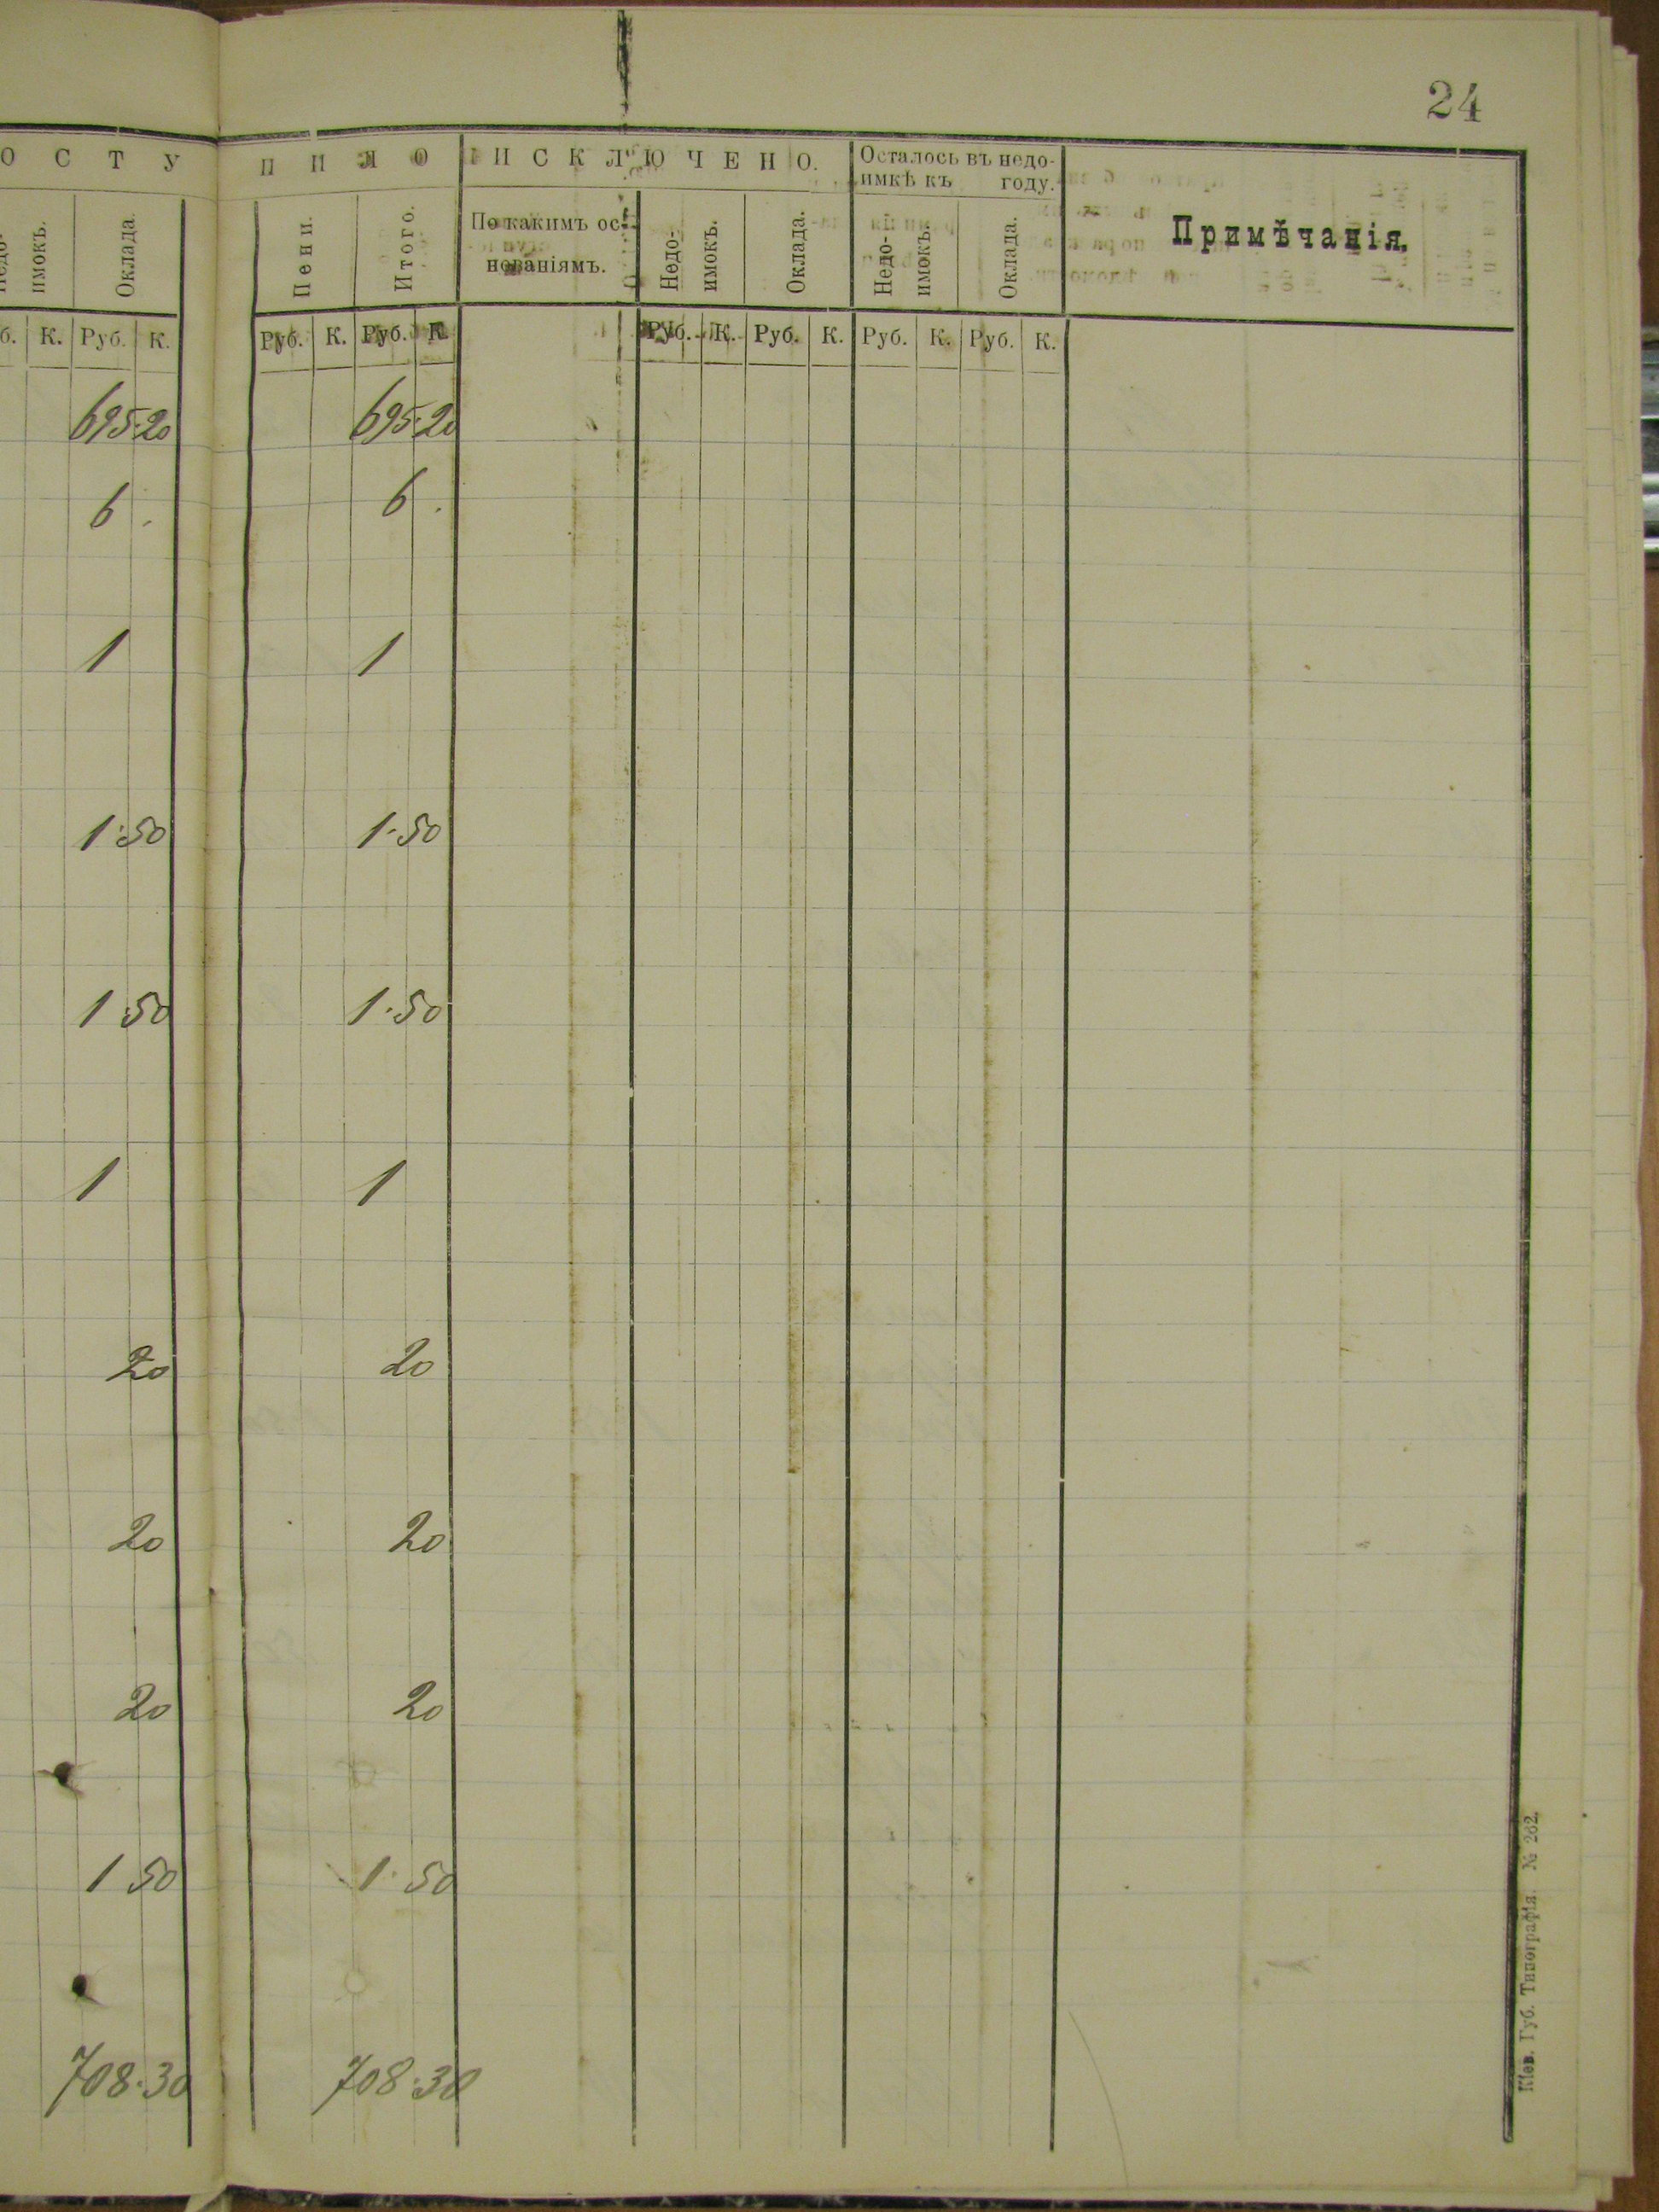 24
О С Т У П И Л О И С К Л Ю Ч Е Н О. Осталось въ недо-
имкѣ къ году.
имокъ. Оклада. Пени. Итого. По какимъ ос-
нованіямъ. Недо-
имокъ. Оклада. Недо-
имокъ. Оклада. Примѣчанія.
К. Руб. К. Руб. К. Руб. К. Руб. К. Руб. К. Руб. К. Руб. К.
695.20 695.20
6 . 6 .
1 1
1.50 1.50
1.50 1.50
1 1
20 20
20 20
20 20
1 50 1.50
708.30 708.30
Кіев. Губ. Типографія. № 262.